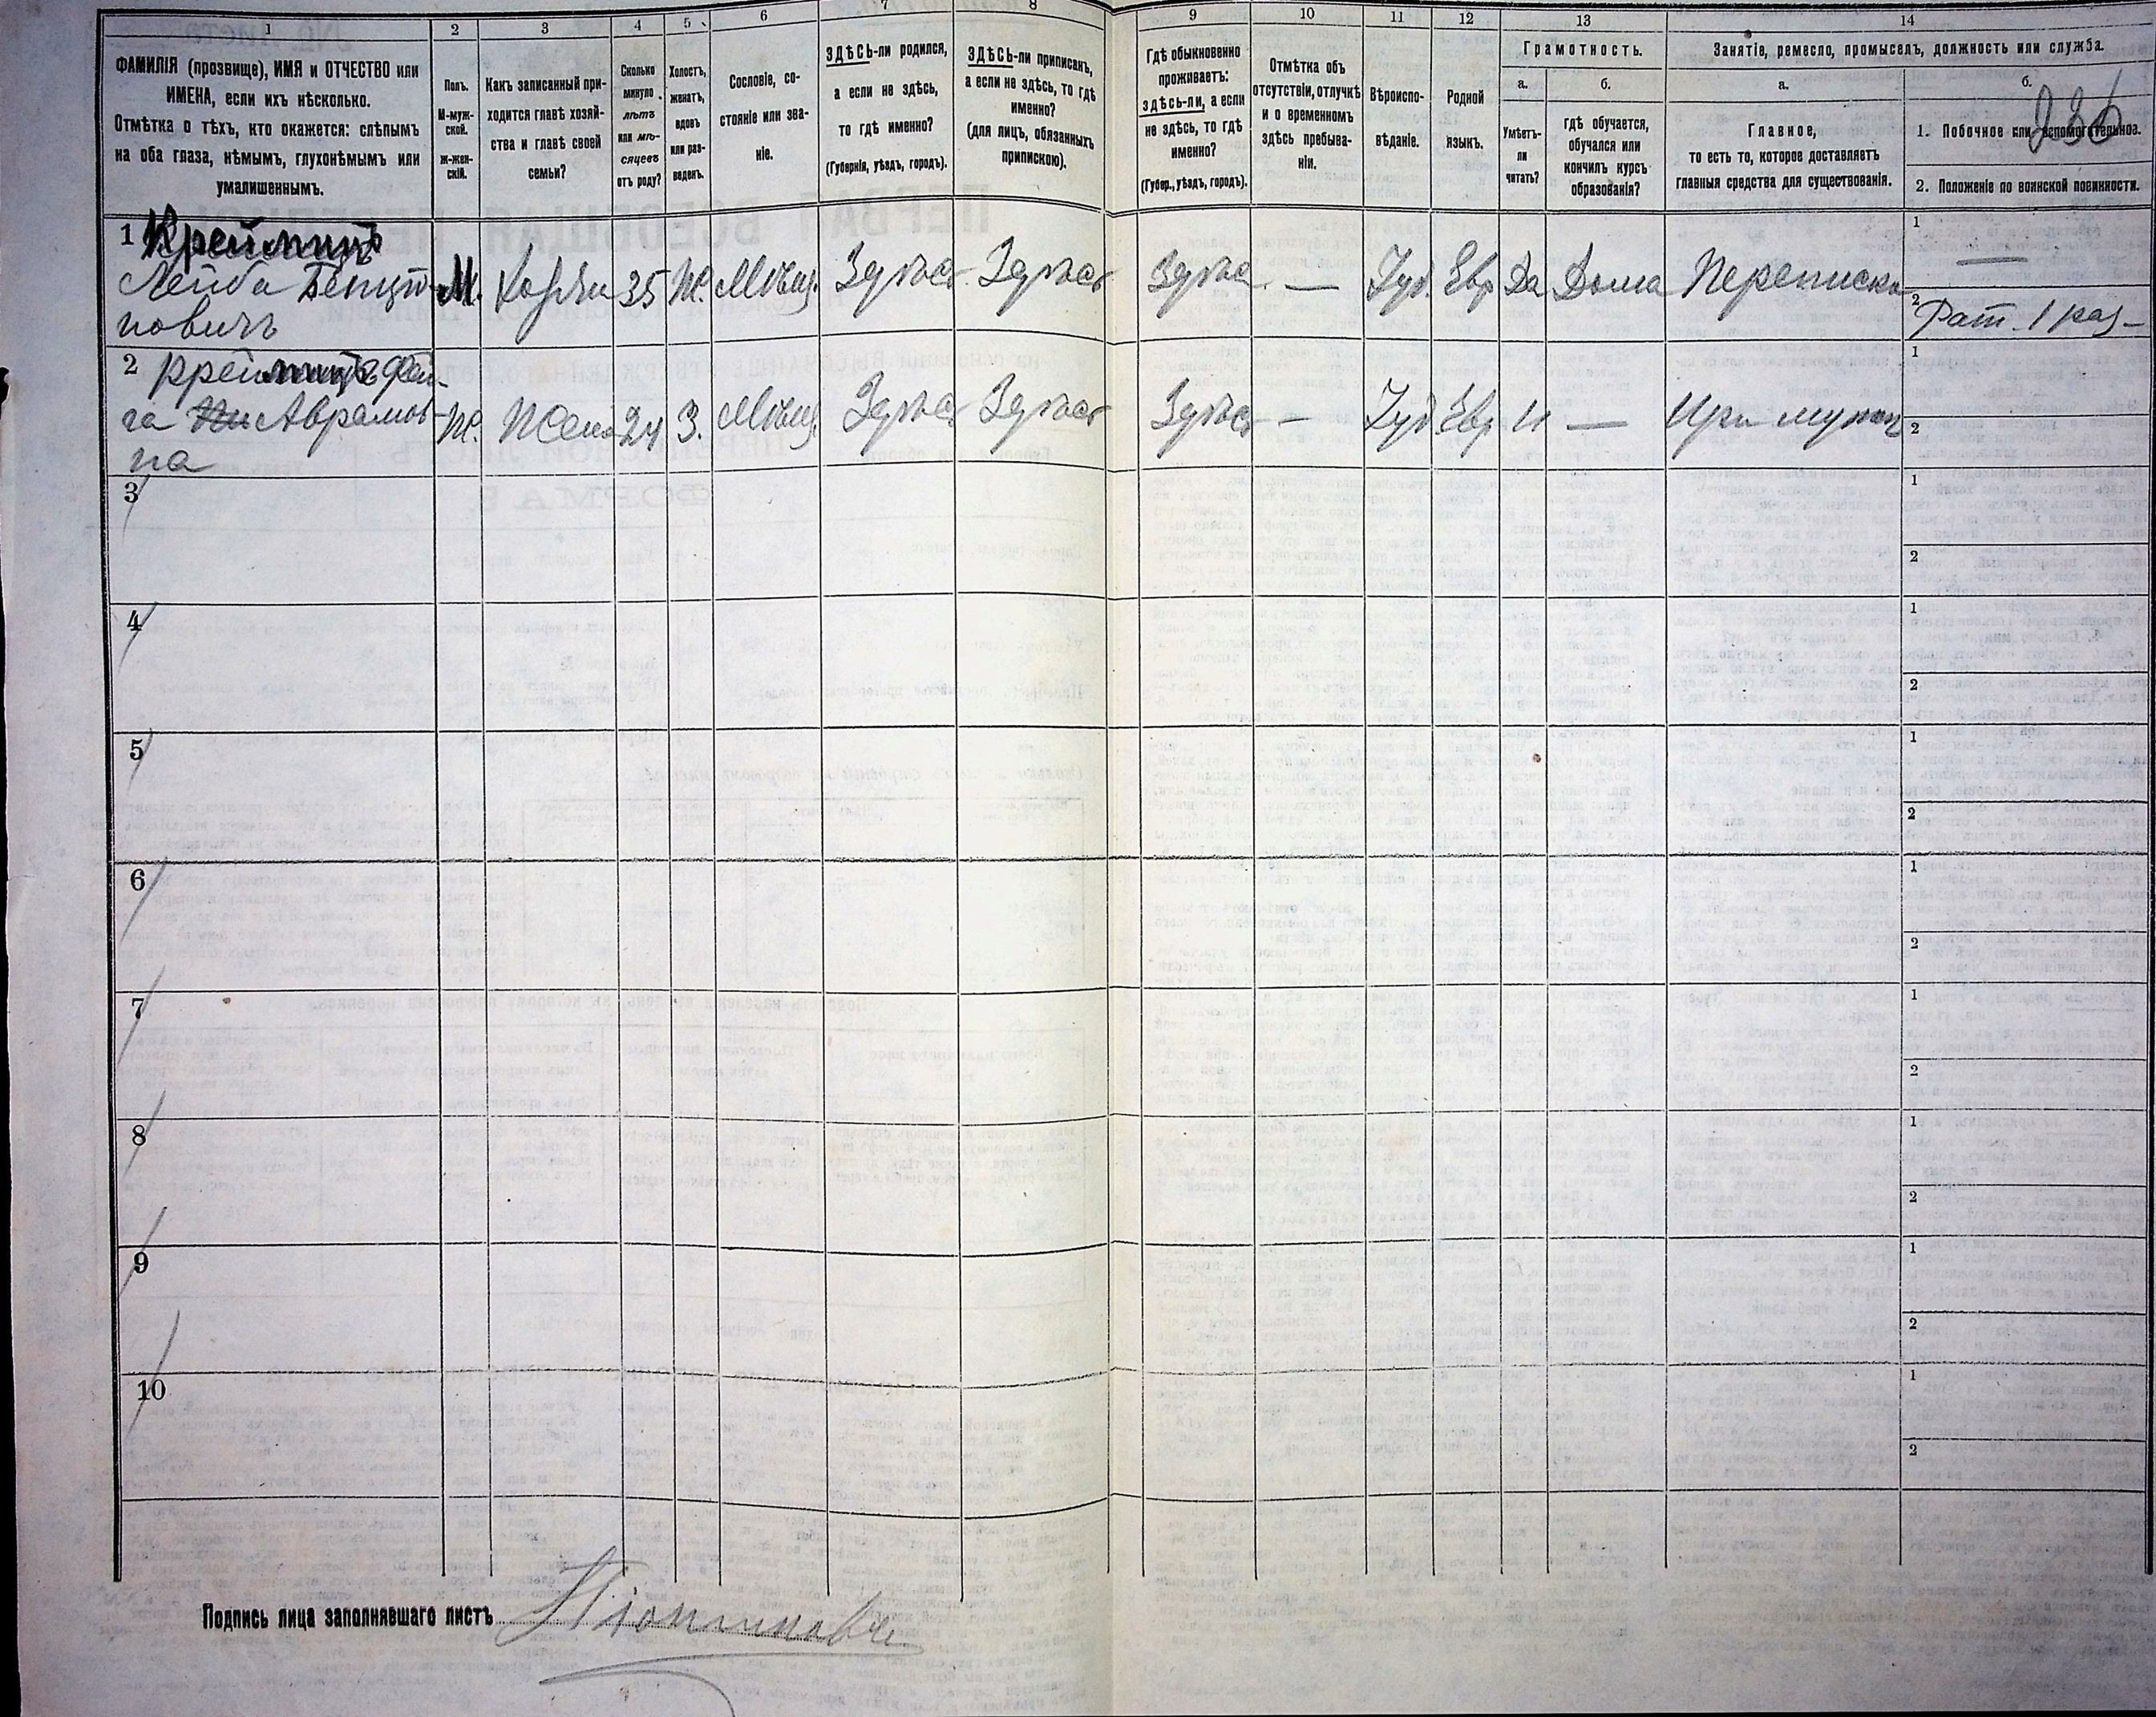 1 2 3 4 5 6 7 8 9 10 11 12 13 14
ФАМИЛІЯ (прозвище), ИМЯ и ОТЧЕСТВО или
ИМЕНА, если ихъ нѣсколько.
Отмѣтка о тѣхъ, кто окажется: слѣпымъ
на оба глаза, нѣмымъ, глухонѣмымъ или
умалишеннымъ.
Полъ.
М-муж-
ской.
ж-жен-
скій.
Какъ записанный при-
ходится главѣ хозяй-
ства и главѣ своей
семьи?
Сколько
минуло
лѣтъ
или мѣ-
сяцевъ
отъ роду?
Холостъ,
женатъ,
вдовъ
или раз-
веденъ.
Сословіе, со-
стояніе или зва-
ніе.
ЗДѢСЬ-ли родился,
а если не здѣсь,
то гдѣ именно?
(Губернія, уѣздъ, городъ).
ЗДѢСЬ-ли приписанъ,
а если не здѣсь, то гдѣ
именно?
(для лицъ, обязанныхъ
припискою).
Гдѣ обыкновенно
проживаетъ:
здѣсь-ли, а если
не здѣсь, то гдѣ
именно?
(Губер., уѣздъ, городъ).
Отмѣтка объ
отсутствіи, отлучкѣ
и о временномъ
здѣсь пребыва-
ніи.
Вѣроиспо-
вѣданіе.
Родной
языкъ.
Грамотность.
а.
Умѣетъ-
ли
читать?
б.
гдѣ обучается,
обучался или
кончилъ курсъ
образованія?
Занятіе, ремесло, промыселъ, должность или служба.
а.
Главное,
то есть то, которое доставляетъ
главныя средства для существованія.
б.
1. Побочное или вспомогательное.
2. Положеніе по воинской повинности.
236
1
Лейба Бенціо-
новичъ
М. Хозяин 35 Ж. Мѣщ. Здѣсь Здѣсь Здѣсь — Іуд. Евр Да Дома Переписка
1 —
2 Рат. 1 раз-
2 Фей-
га Аврамов-
на
Ж. Жена 24 З. Мѣщ. Здѣсь Здѣсь Здѣсь — Іуд Евр Н — При муже
1
2
3
1
2
4
1
2
5
1
2
6
1
2
7
1
2
8
1
2
9
1
2
10
1
2
Подпись лица заполнявшаго листъ